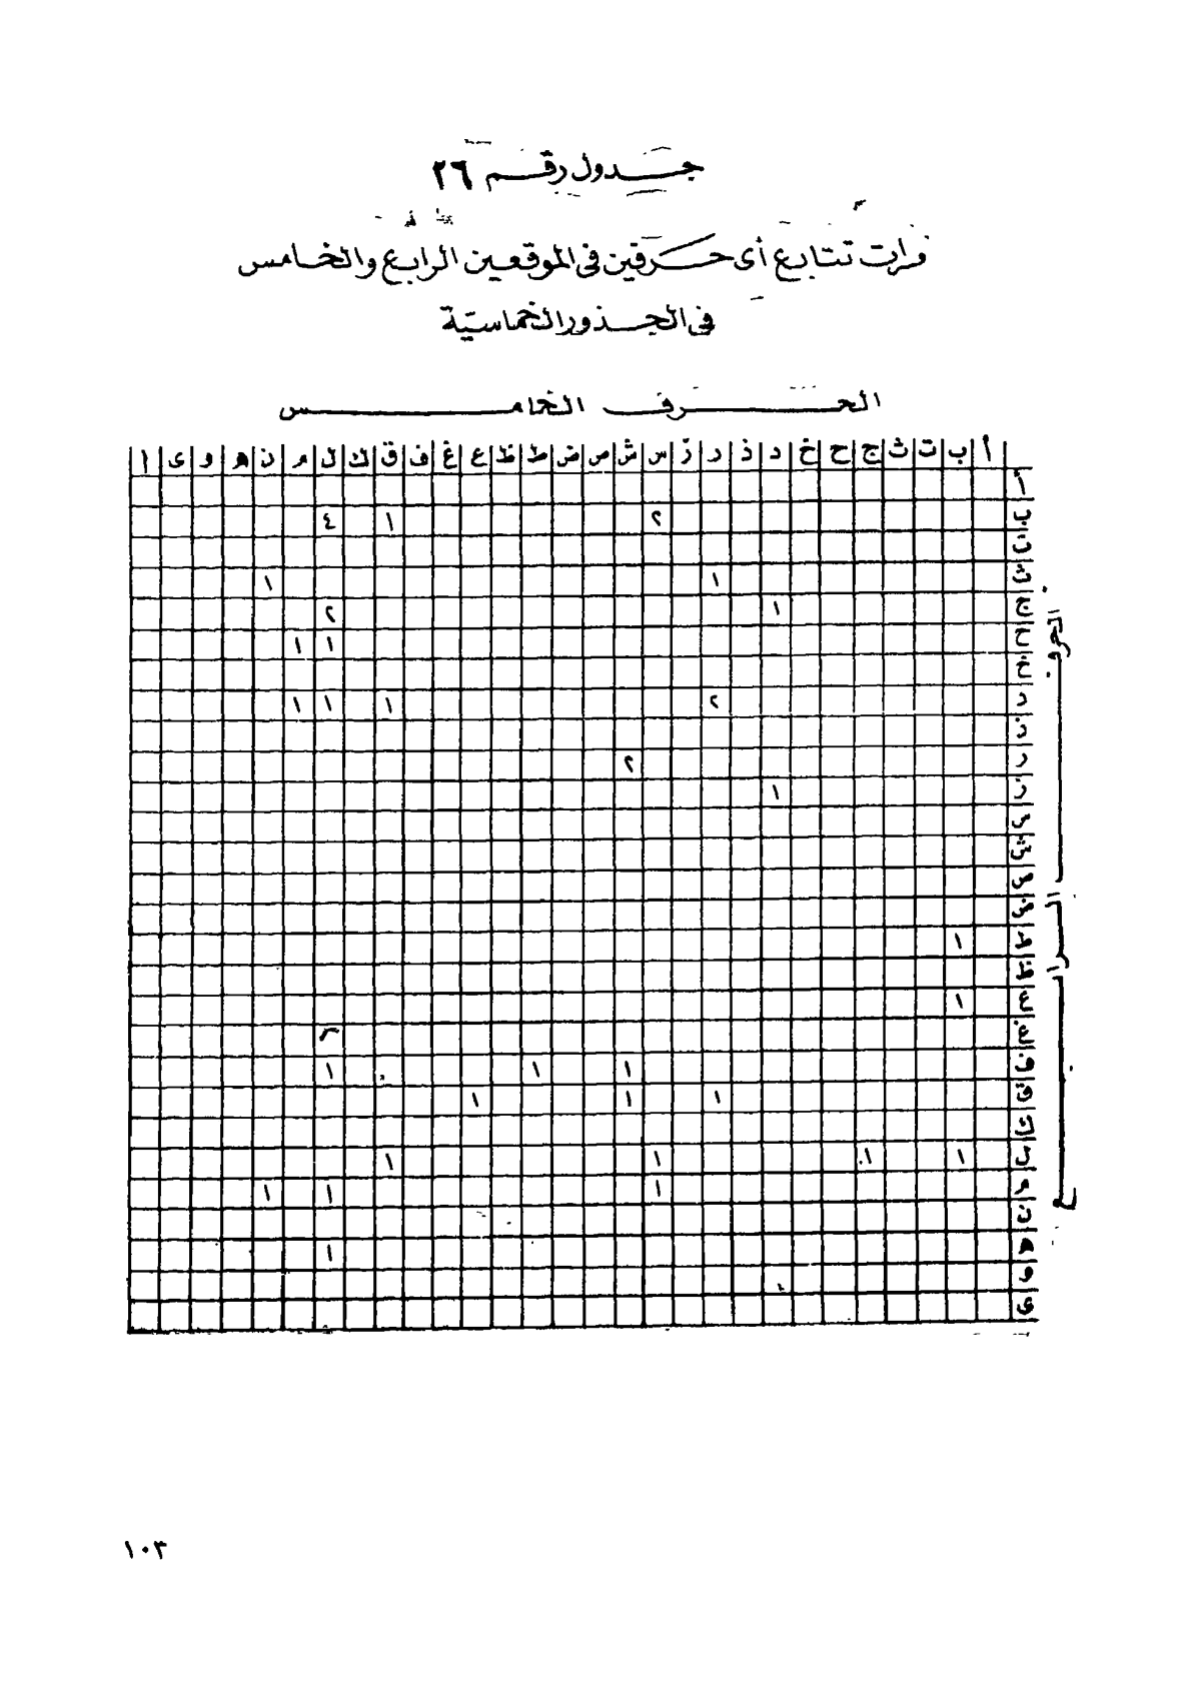 جدول رقم ٢٦
مرات تتابع أى حرفين فى الموقعين الرابع والخامس
فى الجذور الخماسية
الحرف الخامس
أ ب ت ث ج ح خ د ذ ر ز س ش ص ض ط ظ ع غ ف ق ك ل م ن ه و ى ا
الحرف الرابع
أ
ب ٢ ١ ٤
ت
ث ١ ١
ج ١ ٢
ح ١ ١
خ
د ٢ ١ ١ ١
ذ
ر ٢
ز ١
س
ش
ص
ض
ط ١
ظ
ع ١
غ
ف ١ ١ ١
ق ١ ١ ١
ك
ل ١ ١ ١ ١
م ١ ١ ١
ن
ه ١
و
ى
١٠٣